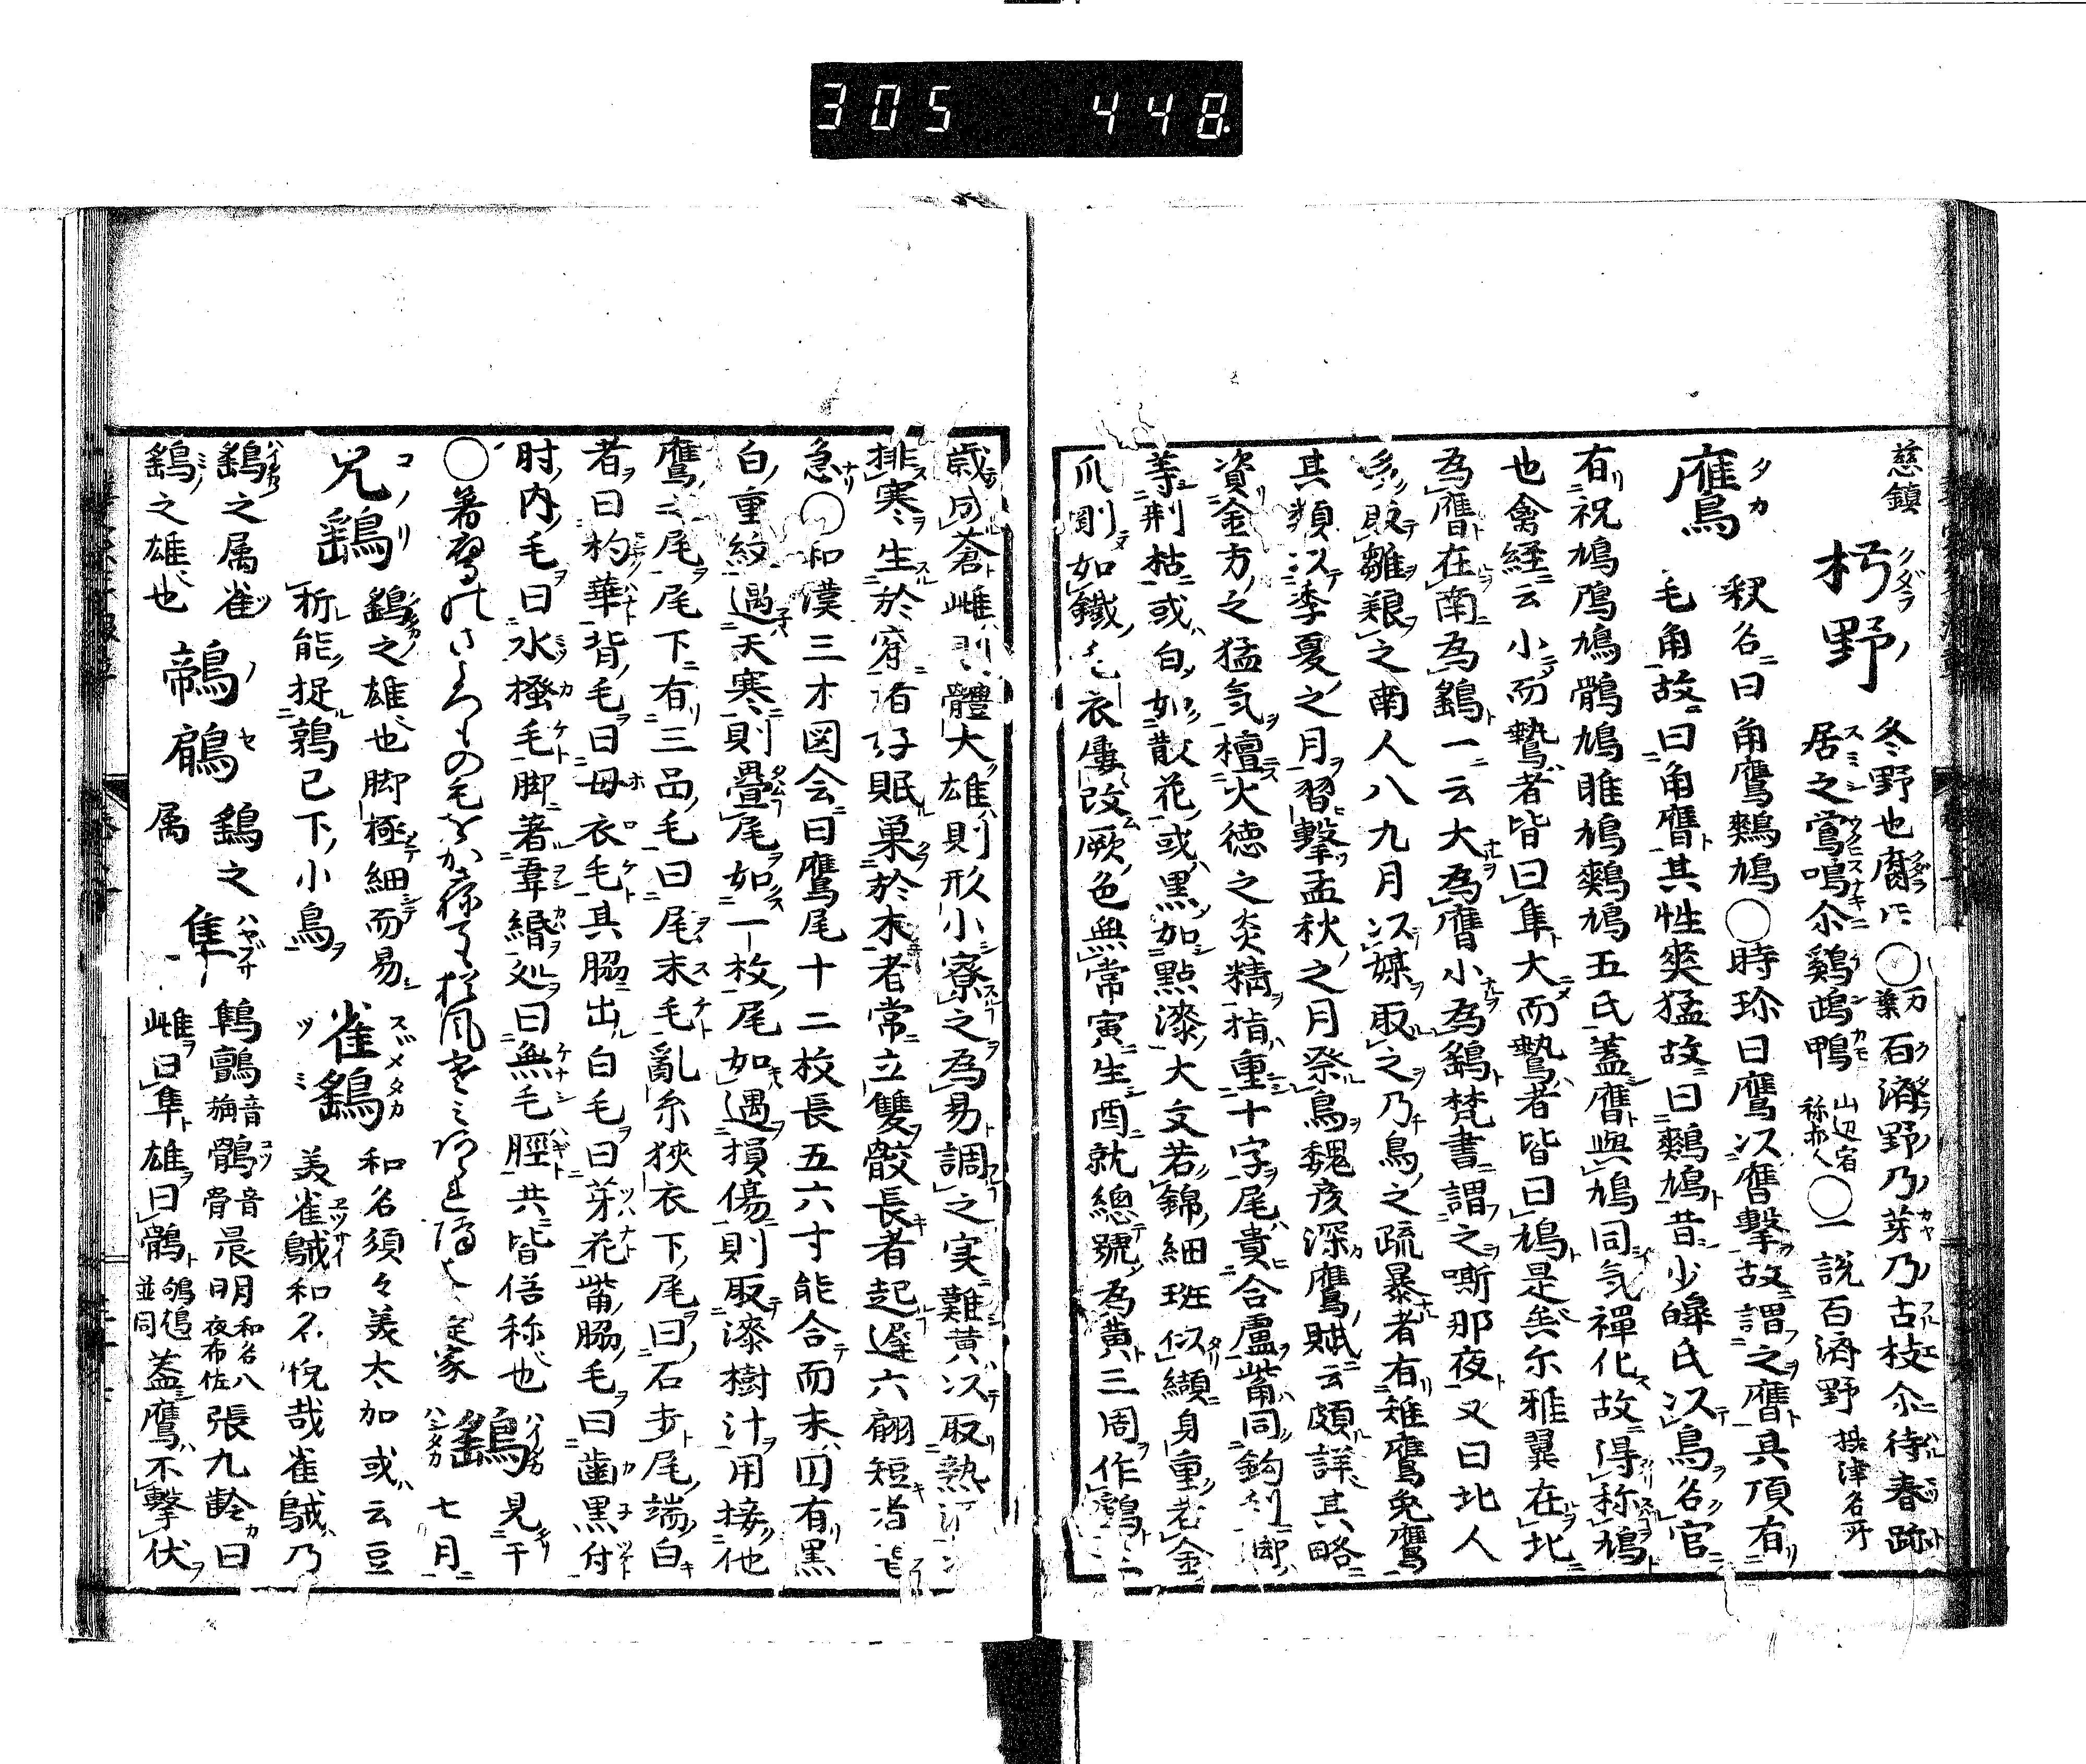 305 448
慈鎮
朽野 冬野也腐ニ○万葉石済野乃芽乃古枝尒待春跡
居之鴬鳴尒鷄鴨 山辺宿称赤人○一説百済野摂津名所
鷹 釈名曰角鷹鷞鳩○時珍曰鷹以膺撃故謂之膺其頂有
毛角故曰角膺其性爽猛故曰鷞鳩昔少皞氏以鳥名官
有祝鳩鳲鳩鶻鳩睢鳩鷞鳩五氏蓋膺與鳩同気禅化故得称鳩
也禽経云小而鷙者皆曰隼大而鷙者皆曰鳩是矣尓雅翼在北
為膺在南為鷂一云大為膺小為鷂梵書謂之嘶那夜又曰北人
多取雛養之南人八九月以媒取之乃鳥之疏暴者有雉鷹兔鷹
其類以季夏之月習撃孟秋之月祭鳥魏彦深鷹賦云頗詳其略
資金方之猛気檀火徳之炎精指重十字尾貴合盧觜同鈎利脚
等荊枯或白如散花或黒如點漆大文若錦細斑似纈身重若金
爪剛如鐵毛衣屢改厥色無常寅生酉就總號為黄三周作鷂二
歳成蒼雌則體大雄則形小寮之為易調之実難黄以取熟
排寒生於窟者好眠巣於木者常立雙骹長者起遅六翮短者
急○和漢三才図会曰鷹尾十二枚長五六寸能合而末円有黒
白重紋遇天寒則疊尾如一枚尾如遇損傷則取漆樹汁用接他
鷹之尾尾下有三品毛曰尾末毛亂糸狭衣下尾曰石打尾端白
者曰杓華背毛曰母衣毛其脇出白毛曰芽花觜脇毛曰歯黒付
肘内毛曰水掻毛脚著韋緡処曰無毛脛共皆俗称也
定家 鷂 見于七月
兄鷂 鷂之雄也脚極細而易折能捉鶉已下小鳥 雀鷂 和名須々美太加或云豆
美雀𪀚和名悦哉雀𪀚乃
鷂之属雀鷂之雄也 鷂之属 隼 鷣鸇音旃鶻音骨晨明日和名八夜布佐張九齢曰
雌曰隼雄曰鶻 並同蓋鷹不撃伏